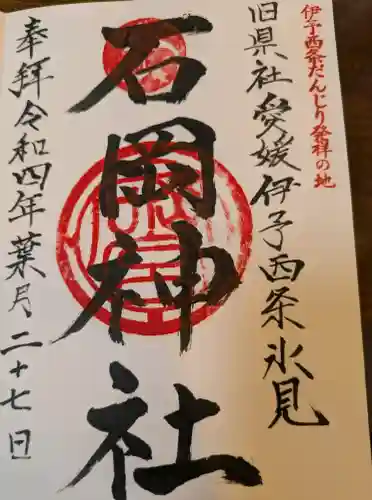 伊予西条だんじり発祥の地
旧県社愛媛伊予西条氷見
石岡神社
奉拝令和四年葉月二十七日